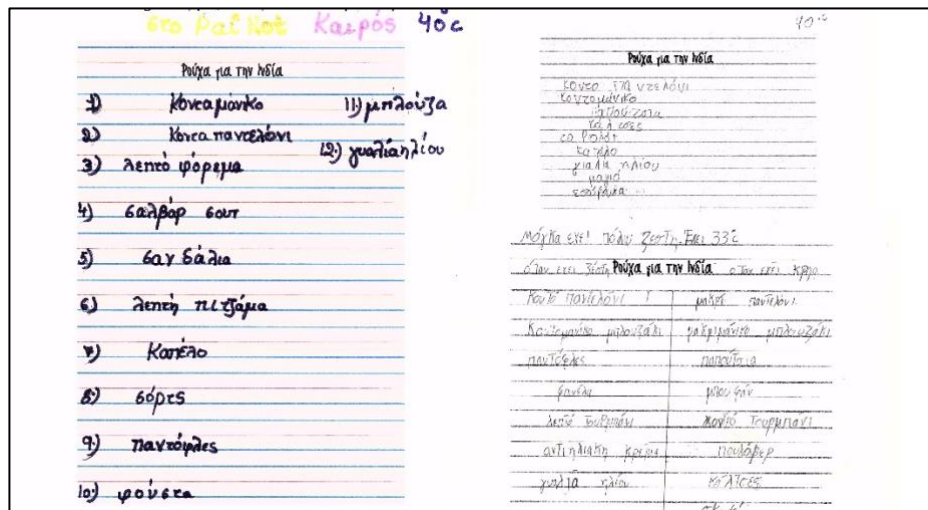 στο Ραϊ κοτ Καιρός 40°c
Ρούχα για την Ινδία
1) κοντομάνικο
2) κοντο παντελόνι
3) λεπτό φόρεμα
4) σαλβάρ σουτ
5) σαν δάλια
6) λεπτή πιτζάμα
7) καπέλο
8) σόρτς
9) παντόφλες
10) φούστα
11) μπλούζα
12) γυαλιά ηλίου
40°c
Ρούχα για την Ινδία
κοντο παντελόνι
κοντομάνικο
καπέλο
γιαλια ηλίου
μαγιό
εσώρουχα
Μόγκα εχει πολυ ζεστη. Εχει 33°c
όταν εχει ζέστη Ρούχα για την Ινδία όταν εχει κρύο
κοντό παντελόνι ! μακρύ παντελόνι
κοντομάνικο μπλουζάκι μακριμάνικο μπλουζάκι
παντόφλες παπούτσια
φανέλα μπουφάν
λεπτό τουρμπάνι χοντρό τουρμπάνι
αντιηλιακη κρέμα πουλόβερ
γυαλιά ηλίου κάλτσες